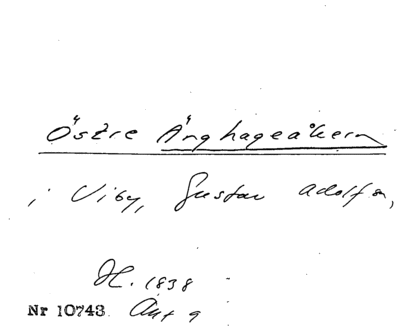 Östre Änghageåkern
i Viby, Gustav Adolf s,
H. 1838
Nr 10743 Akt 9